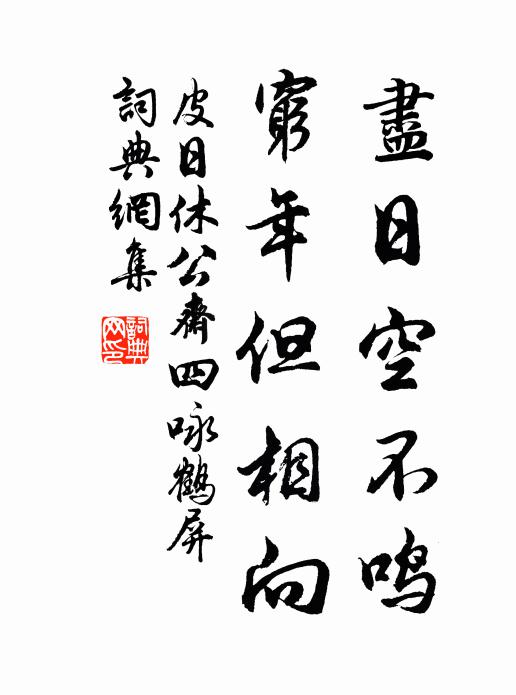 盡日空不鳴
窮年但相向
皮日休公齋四咏鶴屏
詞典網集
詞典網印